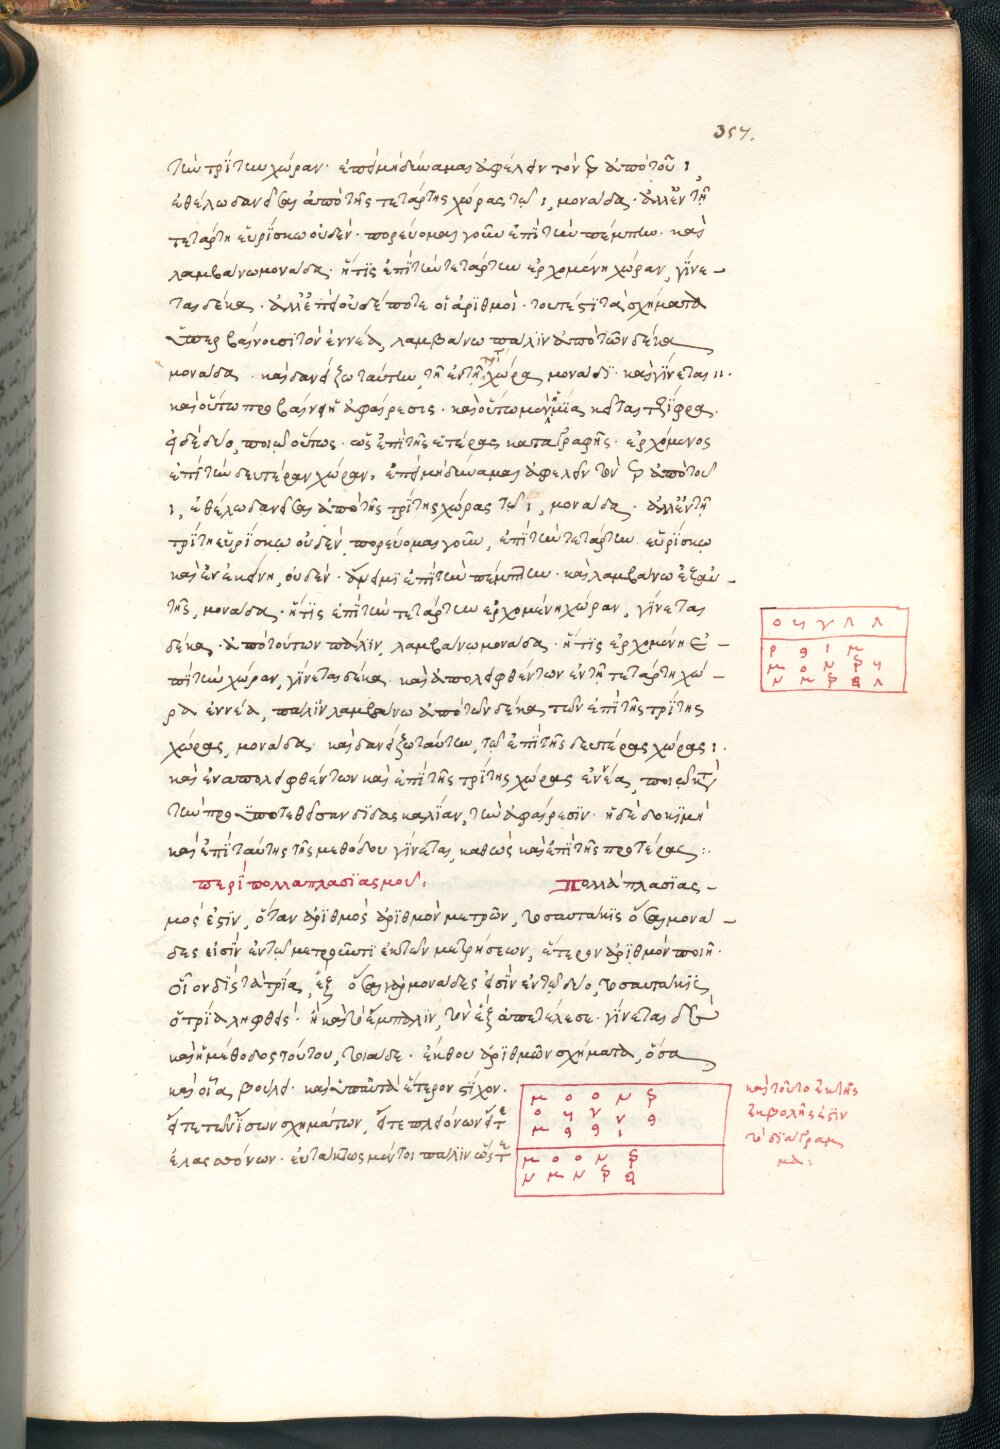 357.
τὴν τρίτην χώραν· ἐπεὶ μὴ δύναμαι ἀφελεῖν τὸν ἀπὸ τοῦ 1,
ἐθέλω δανείσαι ἀπὸ τῆς τετάρτης χώρας τῶ 1, μονάδα· ἀλλ' ἐν τῆ
τετάρτη εὑρίσκω οὐδέν· πορεύομαι γοῦν ἐπὶ τὴν πέμπτην· καὶ
λαμβάνω μονάδα· ἥτις ἐπὶ τὴν τετάρτην ἐρχομένη χώραν, γίνε-
ται δέκα· ἀλλ' ἐπεὶ οὐδέποτε οἱ ἀριθμοὶ· τουτέστι τὰ σχήματα
ὑπερβαίνουσι τὸν ἐννέα, λαμβάνω πάλιν ἀπὸ τῶν δέκα
μονάδα· καὶ δανείζω ταύτην, τῆ ἐν τῆ τρί χώρα μονάδι· καὶ γίνεται 11·
καὶ οὕτω προβαίνει ἡ ἀφαίρεσις· καὶ οὕτω μὲν ἡ μία κεῖται τζίφρα·
εἰ δὲ δύο, ποιῶ οὕτως· ὡς ἐπὶ τῆς ἑτέρας καταγραφῆς· ἐρχόμενος
ἐπὶ τὴν δευτέραν χώραν, ἐπεὶ μὴ δύναμαι ἀφελεῖν τὸν ἀπὸ τοῦ
1, ἐθέλω δανείσαι ἀπὸ τῆς τρίτης χώρας τῶ 1, μονάδα· ἀλλ' ἐν τῆ
τρίτη εὑρίσκω οὐδέν, πορεύομαι γοῦν, ἐπὶ τὴν τετάρτην· εὑρίσκω
καὶ ἐν ἐκείνη, οὐδέν· ἄπειμι ἐπὶ τὴν πέμπτην· καὶ λαμβάνω ἐξ αὐ-
τῆς, μονάδα· ἥτις ἐπὶ τὴν τετάρτην ἐρχομένη χώραν, γίνεται
δέκα· ἀπὸ τούτων πάλιν, λαμβάνω μονάδα· ἥτις ἐρχομένη ἐ-
πὶ τὴν χώραν, γίνεται δέκα· καὶ ἀπολειφθέντων ἐν τῆ τετάρτη χώ-
ρα ἐννέα, πάλιν λαμβάνω ἀπὸ τῶν δέκα τῶν ἐπὶ τῆς τρίτης
χώρας, μονάδα· καὶ δανείζω ταύτην, τῶ ἐπὶ τῆς δευτέρας χώρας 1·
καὶ ἐναπολειφθέντων καὶ ἐπὶ τῆς τρίτης χώρας ἐννέα, ποιῶ κατὰ
τὴν προϋποτεθεῖσαν διδασκαλίαν, τὴν ἀφαίρεσιν· ἡ δὲ δοκιμὴ
καὶ ἐπὶ ταύτης τῆς μεθόδου γίνεται, καθὼς καὶ ἐπὶ τῆς προτέρας:
περὶ πολλαπλασιασμοῦ. Πολλαπλασιας-
μός ἐστιν, ὅταν ἀριθμὸς ἀριθμὸν μετρῶν, τοσαυτάκις ὅσαι μονά-
δες εἰσὶν ἐν τῶ μετροῦντι ἐκ τῶν μετρήσεων, ἕτερον ἀριθμὸν ποιῆ·
οἷον δὶς τὰ τρία, ἕξ ὅσαι γὰρ μονάδες εἰσὶν ἐν τῶ δύο, τοσαυτάκις
ὁ τρία ληφθεὶς· ἢ καὶ τὸ ἔμπαλιν, τὸν ἓξ ἀπετέλεσε· γίνεται δὲ
καὶ ἡ μέθοδος τούτου, τοιάδε· ἐκθου ἀριθμῶν σχήματα, ὅσα
καὶ οἷα βούλει· καὶ ὑπ' αὐτὰ ἕτερον στίχον·
εἴτε τῶν ἴσων σχημάτων, εἴτε πλειόνων εἴτε
ἐλασσόνων· εὐτάκτως μέντοι πάλιν ὥστε
ο υ γ λ λ
καὶ τοῦτο ἐκ τῆς
ἐκβολῆς ἐστιν
τὸ διάγραμ
μα: